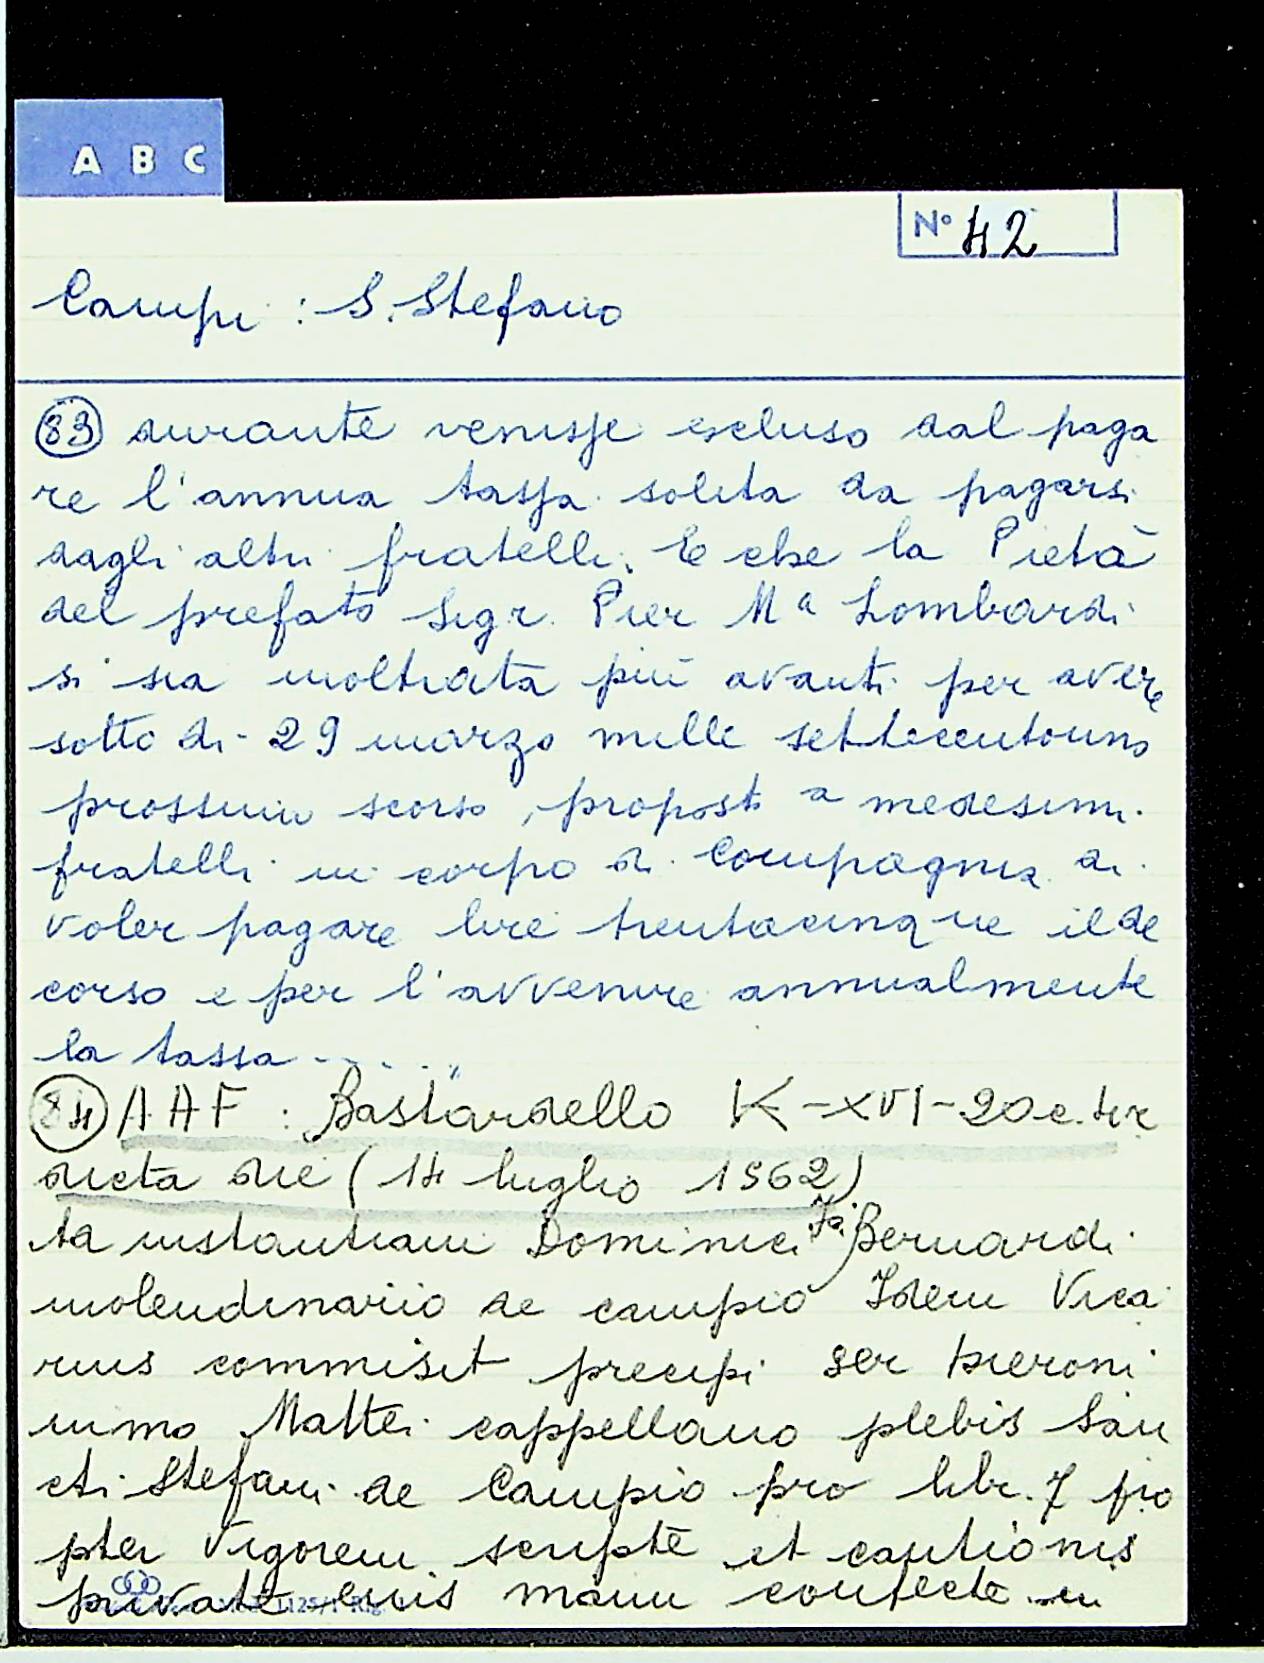 A B C
N° 42
Campi : S. Stefano
83 durante venisse escluso dal paga
re l'annua tassa solita da pagarsi
dagli altri fratelli. E che la Pietà
del prefato Sigr. Pier Mª Lombardi
si sia inoltrata più avanti per avere
sotto di 29 marzo mille settecentouno
prossimo scorso, proposto a medesimi
fratelli in corpo di Compagnia di
voler pagare lire trentacinque il de
corso e per l'avvenire annualmente
la tassa ....."
84 AAF : Bastardello K-XVI-20 c.
dicta die (14 luglio 1562)
ta instantiam Dominici Bernardi
molendinario de campio Idem Vica
rius commisit precipi ser Hieroni
mo Mattei cappellano plebis San
cti Stefani de Campio pro libr. 7 pro
pter vigorem scripte et cautionis
private eius manu confecte in